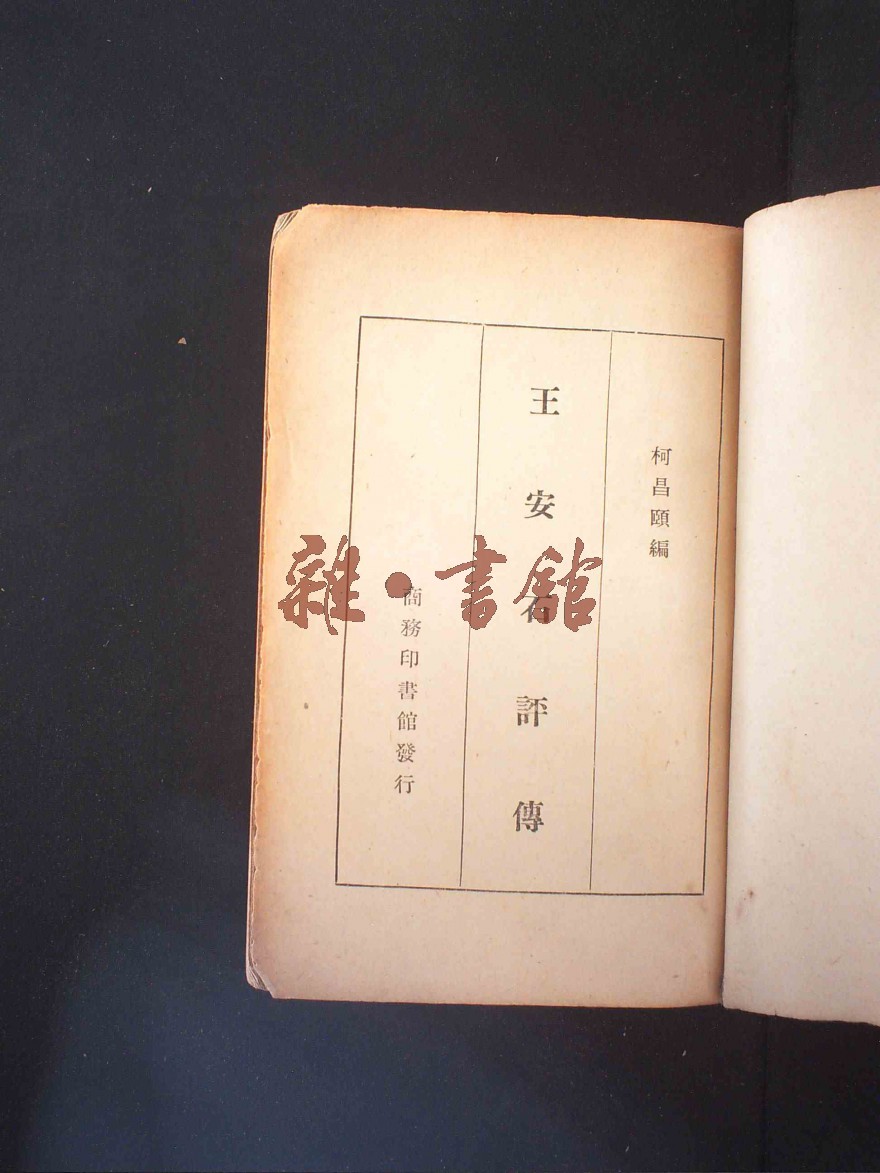 柯昌頤編
王安石評傳
商務印書館發行
雜·書館